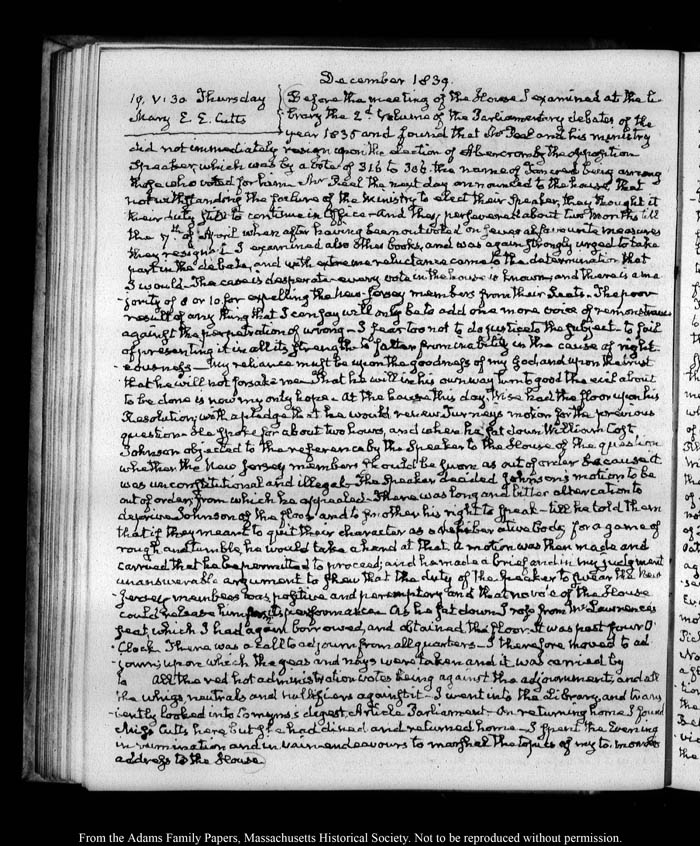 December 1839.
19. V: 30 Thursday
Mary E. E. Cutts
Before the meeting of the House I examined at the Li-
brary the 2d. volume of the Parliamentary debates of the
year 1835 and found that Sir Peel and his ministry
did not immediately resign upon the election of Abercromby the opposition
Speaker, which was by a vote of 316 to 306. the name of being among
those who voted for him. Mr Peel the next day announced to the house, that
notwithstanding the failure of the ministry to elect their Speaker, they thought it
their duty still to continue in Office. And they persevered about two months till
the 7th. of April when after having been outvoted on several favourite measures
they resigned. I examined also other books, and was again strongly urged to take
part in the debate, and with extreme reluctance came to the determination that
I would. The case is desperate every vote in the house is known, and there is a ma-
jority of 8 or 10. for expelling the New-Jersey members from their Seats. The poor
result of any thing that I can say will only be to add one more voice of remonstrance
against the perpetration of wrong. I fear too not to do justice to the subject. to fail
of presenting it in all its strength to falter from inability in the cause of right-
eousness. My reliance must be upon the goodness of my God, and upon the trust
that he will not forsake me. That he will in his own way turn to good the evil about
to be done is now my only hope. At the house this day, Wise had the floor upon his
Resolution; with a pledge that he would renew Turney's motion for the previous
question. He spoke for about two hours, and when he sat down William Cost
Johnson objected to the reference by the Speaker to the House of the question
whether the New Jersey members should be sworn as out of order because it
was unconstitutional and illegal. The Speaker decided Johnson's motion to be
out of order, from which he appealed. There was long and bitter altercation to
deprive Johnson of the floor and to smother his right to speak. till he told them
that if they meant to quit their character as a deliberative body, for a game of
rough and tumble, he would take a hand at that. A motion was then made and
carried that he be permitted to proceed; and he made a brief and in my judgment
unanswerable argument to shew that the duty of the Speaker to swear the New
Jersey members was positive and peremptory and that no vote of the House
could release him from its performance. As he sat down I rose from Mr Lawrence's
seat, which I had again borrowed, and obtained the floor. It was past four O'-
Clock. There was a call to adjourn from all quarters. I therefore moved to ad-
journ; upon which the yeas and nays were taken and it was carried by
to all the red hot administration votes being against the adjournment, and all
the whigs neutrals and nullifiers against it. I went into the Library, and trans-
iently looked into Comyns's digest, Article Parliament. On returning home I found
Miss Cutts here but she had dined and returned home. I spent the Evening
in rumination and in vain endeavours to marshal the topics of my to-morrow's
address to the House
From the Adams Family Papers, Massachusetts Historical Society. Not to be reproduced without permission.